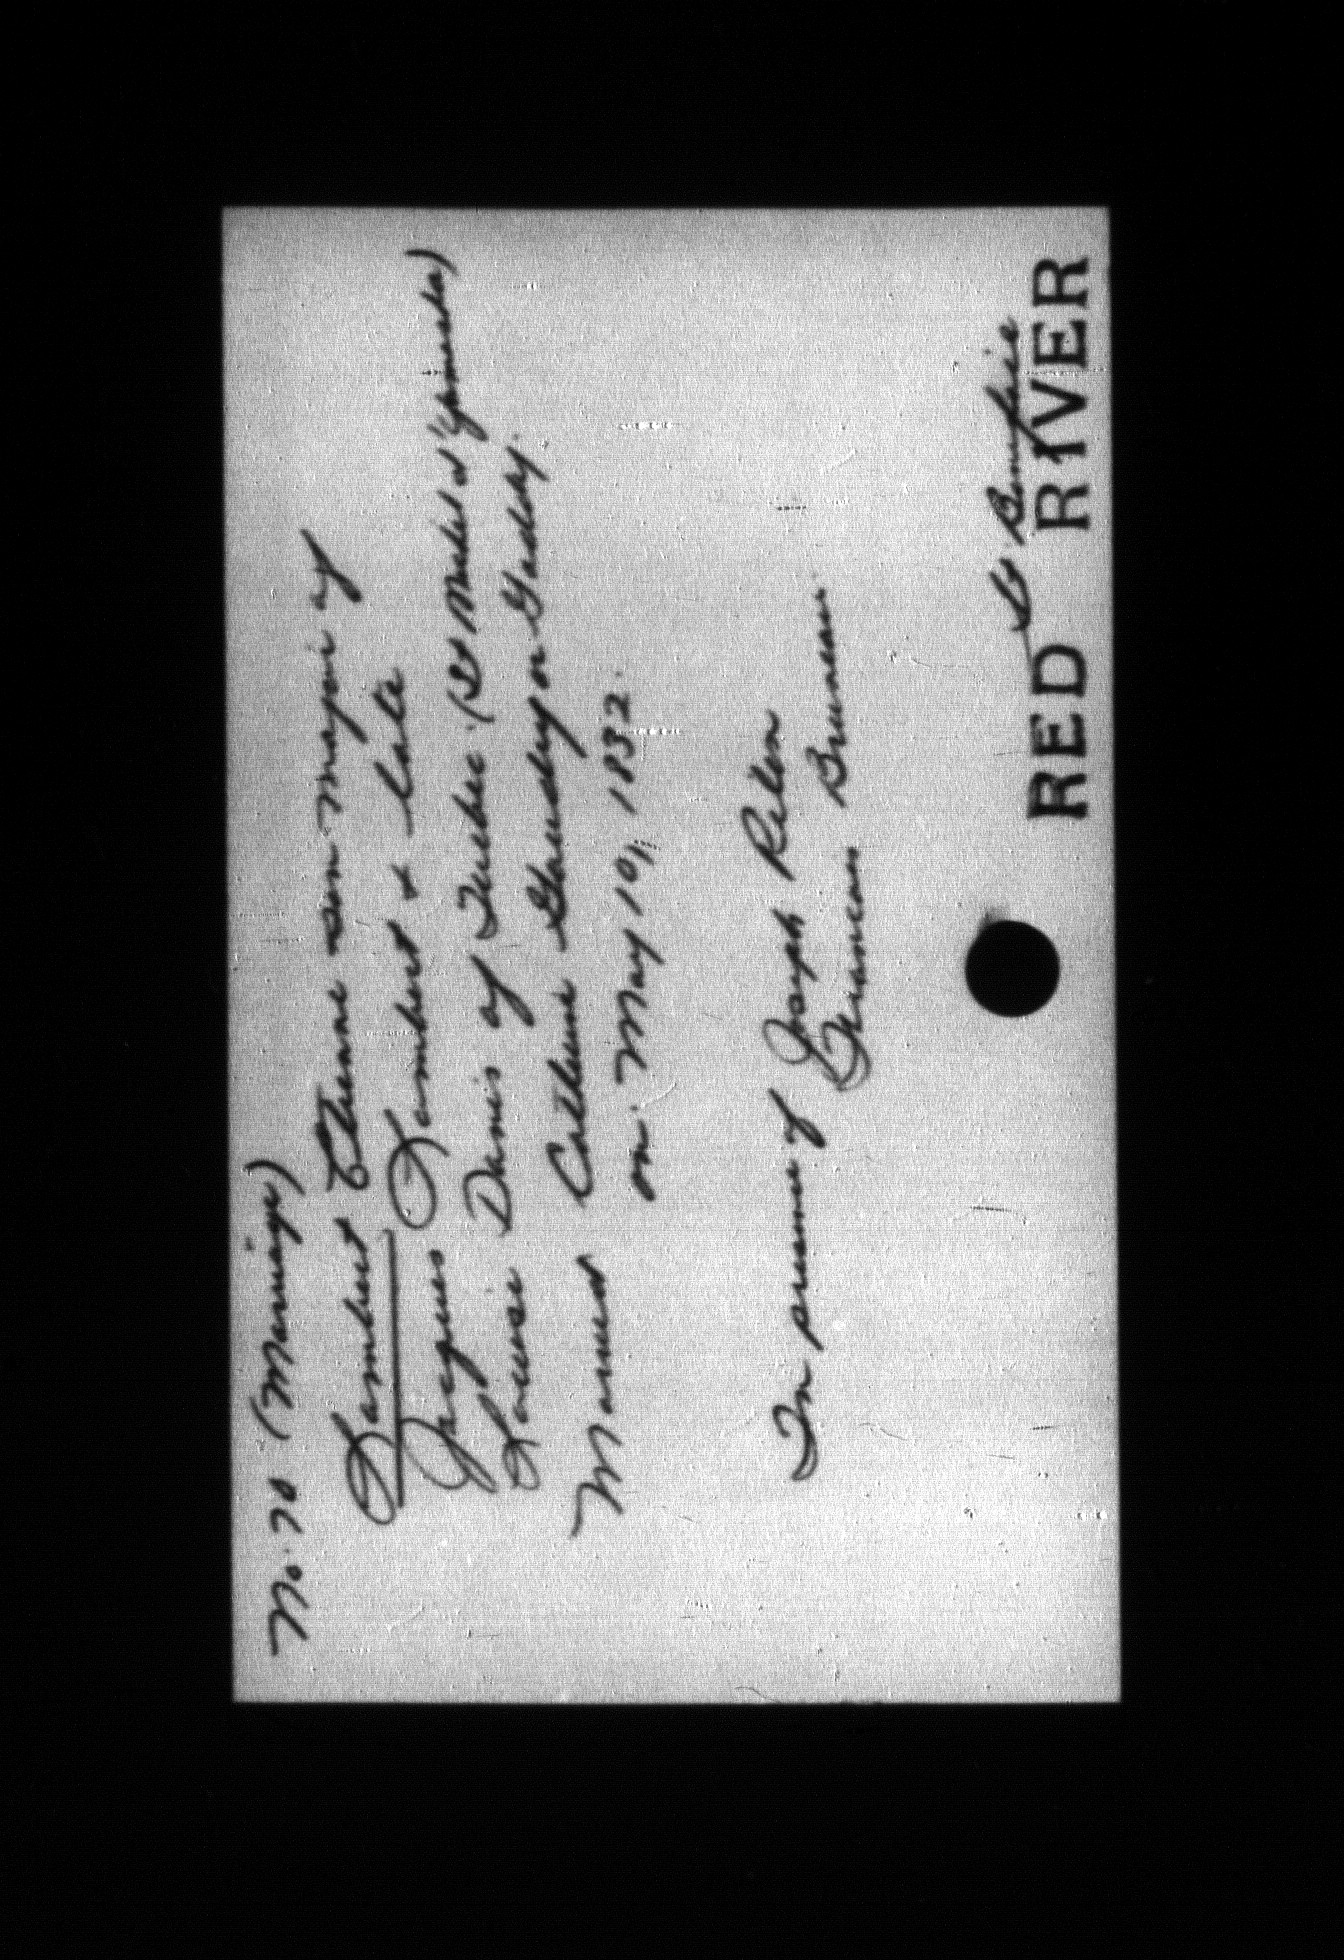 No. 70 (Marriage)
Lambert Etienne son majori of
Jaques Lambert & late
Louise Danis of Quebec (St Michel d'Yamaska)
Married Catherine Gaudry or Gaddy.
on May 10, 1832.
In presence of Joseph Rilon
Francois Bruneau
St Boniface
RED RIVER